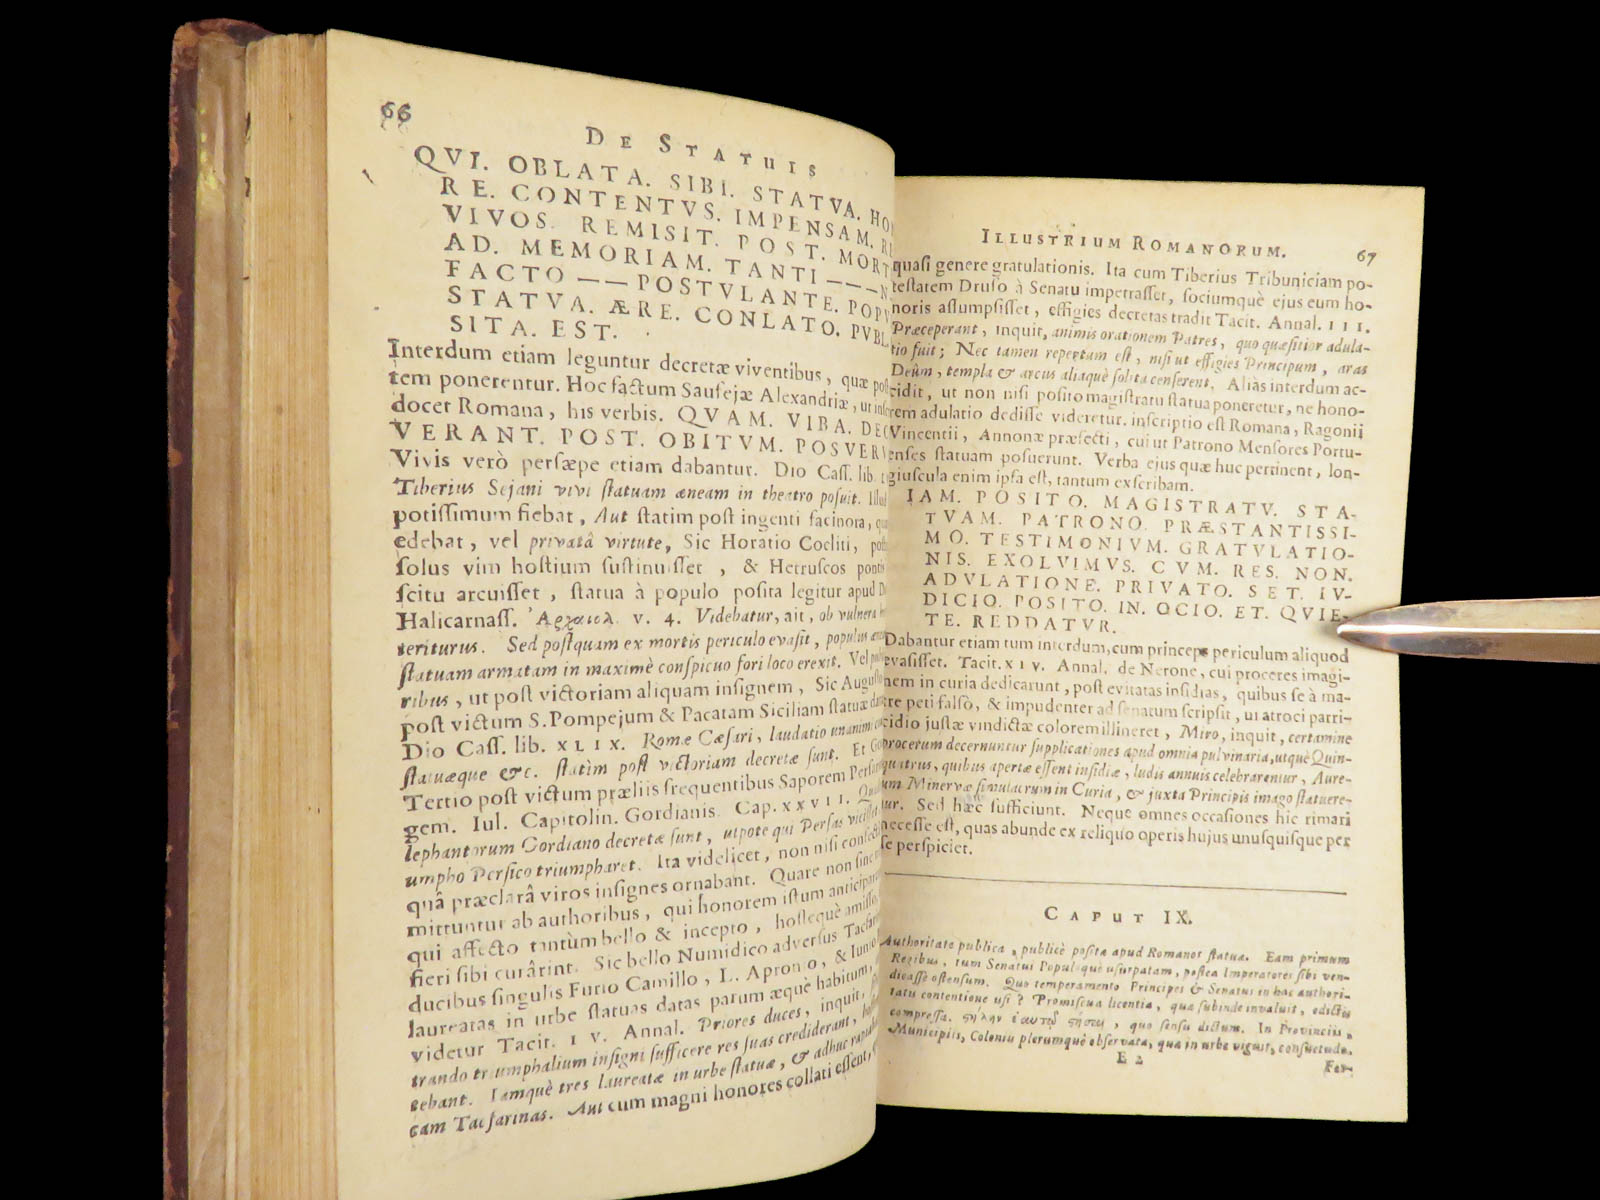 66
DE STATUIS
QVI. OBLATA. SIBI. STATVA. HO
RE. CONTENTVS. IMPENSAM. R
VIVOS. REMISIT. POST. MORT
AD. MEMORIAM. TANTI — — — N
FACTO — — POSTVLANTE. POPV
STATVA. ÆRE. CONLATO. PVBL
SITA. EST.
Interdum etiam leguntur decretæ viventibus, quæ post
tem ponerentur. Hoc factum Saufejæ Alexandriæ, ut inscr
docet Romana, his verbis. QVAM. VIBA. DEC
VERANT. POST. OBITVM. POSVER
Vivis verò persæpe etiam dabantur. Dio Cass. lib.
Tiberius Sejani vivi statuam æneam in theatro posuit. Illud
potissimum fiebat, Aut statim post ingenti facinora, qu
edebat, vel privatâ virtute, Sic Horatio Cocliti, post
solus vim hostium sustinuisset, & Hetruscos ponti
scitu arcuisset, statua à populo posita legitur apud D
Halicarnass. Ἀρχαιολ. v. 4. Videbatur, ait, ob vulnera
teriturus. Sed postquam ex mortis periculo evasit, populus æne
statuam armatam in maximè conspicuo fori loco erexit. Vel
ribus, ut post victoriam aliquam insignem, Sic August
post victum S. Pompejum & Pacatam Siciliam statuæ
Dio Cass. lib. XLIX. Romæ Cæsari, laudatio unanimi
statuæque &c. statìm post victoriam decretæ sunt. Et Go
Tertio post victum præliis frequentibus Saporem Persar
gem. Iul. Capitolin. Gordianis. Cap. XXVII. Qua
lephantorum Gordiano decretæ sunt, utpote qui Persas vicisset
umpho Persico triumpharet. Ita videlicet, non nisi confect
quâ præclarâ viros insignes ornabant. Quare non sine
mittuntur ab authoribus, qui honorem istum anticipar
qui affecto tantùm bello & incepto, hosteque amisso
fieri sibi curârint. Sic bello Numidico adversus Tacfar
ducibus singulis Furio Camillo, L. Apronio, & Iunio
laureatas in urbe statuas datas parum æquè habitum,
videtur Tacit. IV. Annal. Priores duces, inquit,
trando triumphalium insigni sufficere res suas crediderant,
tebant. Iamquè tres laureatæ in urbe statuæ, & adhuc
cam Tacfarinas. Aut cum magni honores collati essent,
ILLUSTRIUM ROMANORUM. 67
quasi genere gratulationis. Ita cum Tiberius Tribuniciam po-
testatem Druso à Senatu impetrasset, sociumquè ejus eum ho-
noris assumpsisset, effigies decretas tradit Tacit. Annal. III.
Præceperant, inquit, animis orationem Patres, quo quæsitior adula-
tio fuit; Nec tamen repertum est, nisi ut effigies Principum, aras
Deûm, templa & arcus aliaquè solita censerent. Aliàs interdum ac-
cidit, ut non nisi posito magistratu statua poneretur, ne hono-
rem adulatio dedisse videretur. inscriptio est Romana, Ragonii
Vincentii, Annonæ præfecti, cui ut Patrono Mensores Portu-
enses statuam posuerunt. Verba ejus quæ huc pertinent, lon-
giuscula enim ipsa est, tantum exscribam.
IAM. POSITO. MAGISTRATV. STA-
TVAM. PATRONO. PRÆSTANTISSI-
MO. TESTIMONIVM. GRATVLATIO-
NIS. EXOLVIMVS. CVM. RES. NON.
ADVLATIONE. PRIVATO. SET. IV-
DICIO. POSITO. IN. OCIO. ET. QVIE-
TE. REDDATVR.
Dabantur etiam tum interdum, cum princeps periculum aliquod
evasisset. Tacit. XIV. Annal. de Nerone, cui proceres imagi-
nem in curia dedicarunt, post evitatas insidias, quibus se à ma-
tre peti falsò, & impudenter ad senatum scripsit, ut atroci parri-
cidio justæ vindictæ colorem illineret, Miro, inquit, certamine
procerum decernuntur supplicationes apud omnia pulvinaria, utquè Quin-
quatrus, quibus apertæ essent insidiæ, ludis annuis celebrarentur, Aure-
um Minervæ simulacrum in Curia, & juxta Principis imago statuere-
tur. Sed hæc sufficiunt. Neque omnes occasiones hic rimari
necesse est, quas abunde ex reliquo operis hujus unusquisque per
se perspiciet.
CAPUT IX.
Authoritate publica, publicè positæ apud Romanos statuæ. Eam primum
Regibus, tum Senatui Populoquè usurpatam, postea Imperatores sibi ven-
dicasse ostensum. Quo temperamento Principes & Senatus in hac authori-
tatu contentione usi? Promiscua licentia, qua subinde invaluit, edictis
compressa. στήλην ἑαυτῷ στῆσαι, quo sensu dictum. In Provinciis,
Municipiis, Coloniis plerumquè observata, qua in urbe viguit, consuetudo.
E 2
Fer-